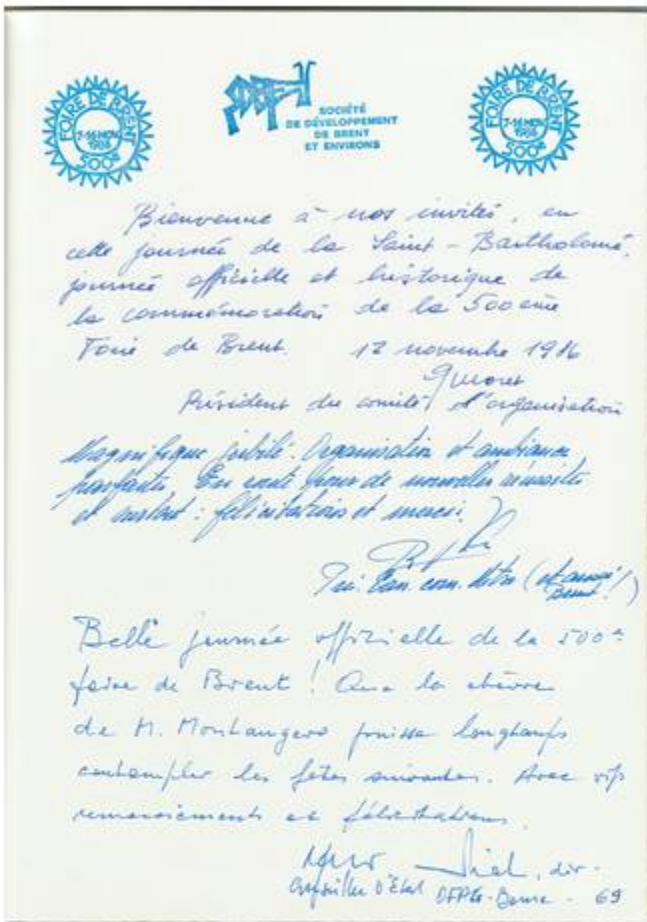 FOIRE DE BRENT
7-16 NOV
1986
500e
SOCIÉTÉ
DE DÉVELOPPEMENT
DE BRENT
ET ENVIRONS
FOIRE DE BRENT
7-16 NOV
1986
500e
Bienvenue à nos invités, en
cette journée de la Saint-Bartholomé,
journée officielle et historique de
la commémoration de la 500eme
Foire de Brent. 12 novembre 1986
Président du comité d'organisation
Magnifique jubilé. Organisation et ambiance
parfaites. En route pour de nouvelles réussites
et surtout : félicitations et merci.
(et aussi
Brent!)
Belle journée officielle de la 500e
foire de Brent ! Que la chèvre
de M. Montangero puisse longtemps
contempler les fêtes suivantes. Avec vifs
remerciements et félicitations.
dir.
Conseiller d'Etat - 69